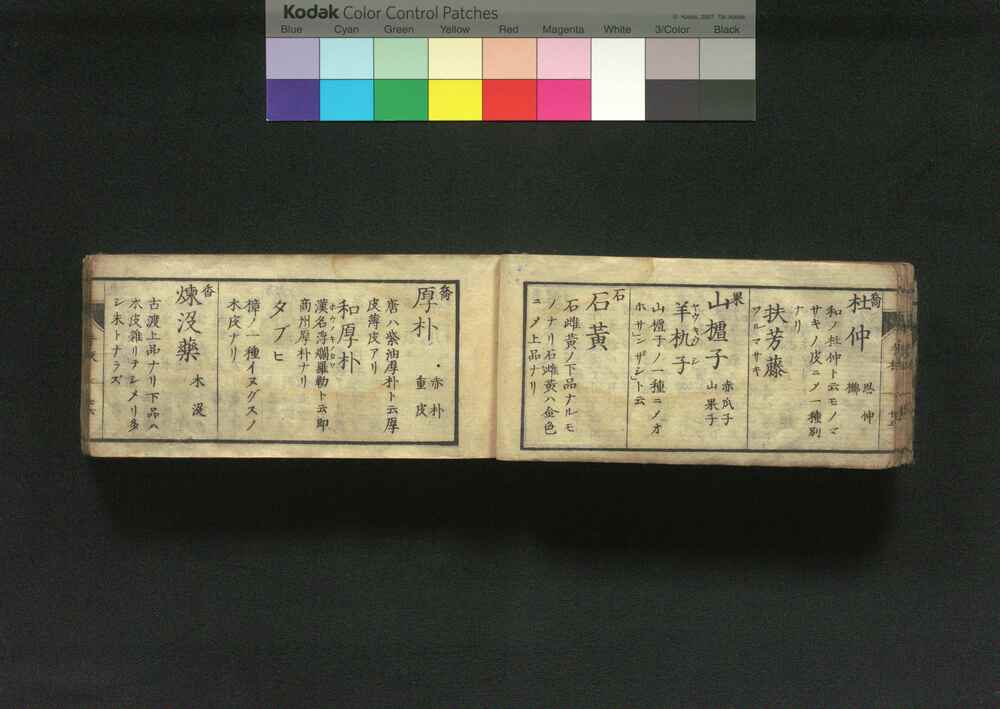 Kodak Color Control Patches
© Kodak, 2007 TM: Kodak
Blue Cyan Green Yellow Red Magenta White 3/Color Black
喬
杜仲
思仲
和ノ杜仲ト云モノハマ
サキノ皮ニメ一種別
ナリ
扶芳藤
ツルマサキ
果
山樝子
赤瓜子
山果子
羊杌子
山樝子ノ一種ニメオ
ホサンザシト云
石
石黄
石雌黄ノ下品ナルモ
ノナリ石雌黄ハ金色
ニメ上品ナリ
喬
厚朴
赤朴
重皮
唐ハ紫油厚朴ト云厚
皮薄皮アリ
和厚朴
ホウノキカワ
漢名浮爛羅勒ト云即
商州厚朴ナリ
タブヒ
樟ノ一種イヌグスノ
木皮ナリ
香
煉没藥
木没
古渡上品ナリ下品ハ
木皮雑リテシメリ多
シ末トナラズ